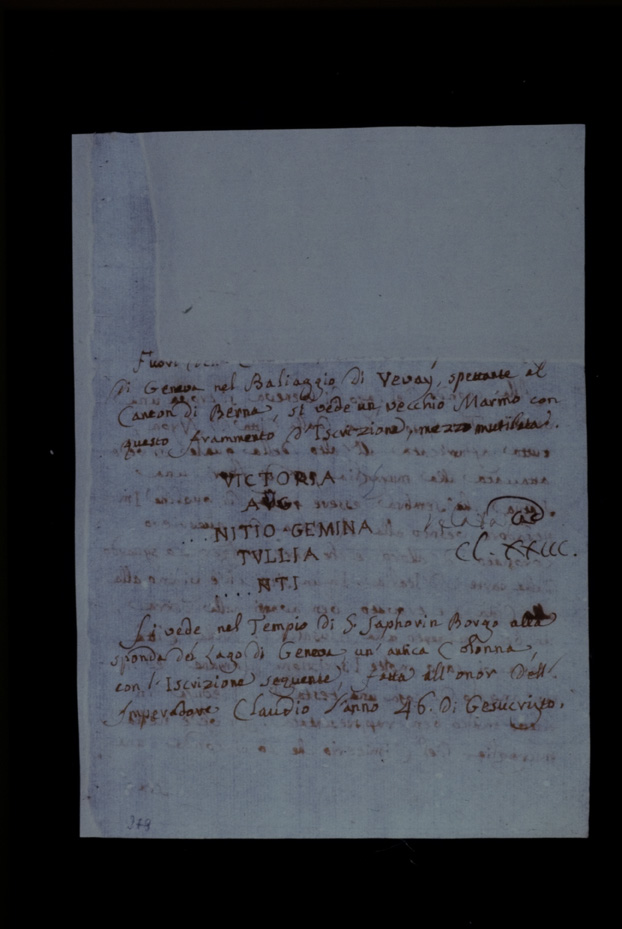 Fuori
di Geneva nel Baliaggio di Vevay, spettante al
Canton di Berna, si vede un vecchio Marmo con
questo frammento d'Iscrizione, mezzo mutilata.
VICTORIA
AVG
....NITIO GEMINA
TVLLIA
....NTI
Cl. XXIII.
Si vede nel Tempio di S. Saphorin Borgo alla
sponda del Lago di Geneva un' antica Colonna,
con l'Iscrizione seguente, fatta all'onor dell'
Imperadore Claudio l'anno 46. di Gesucristo,
369